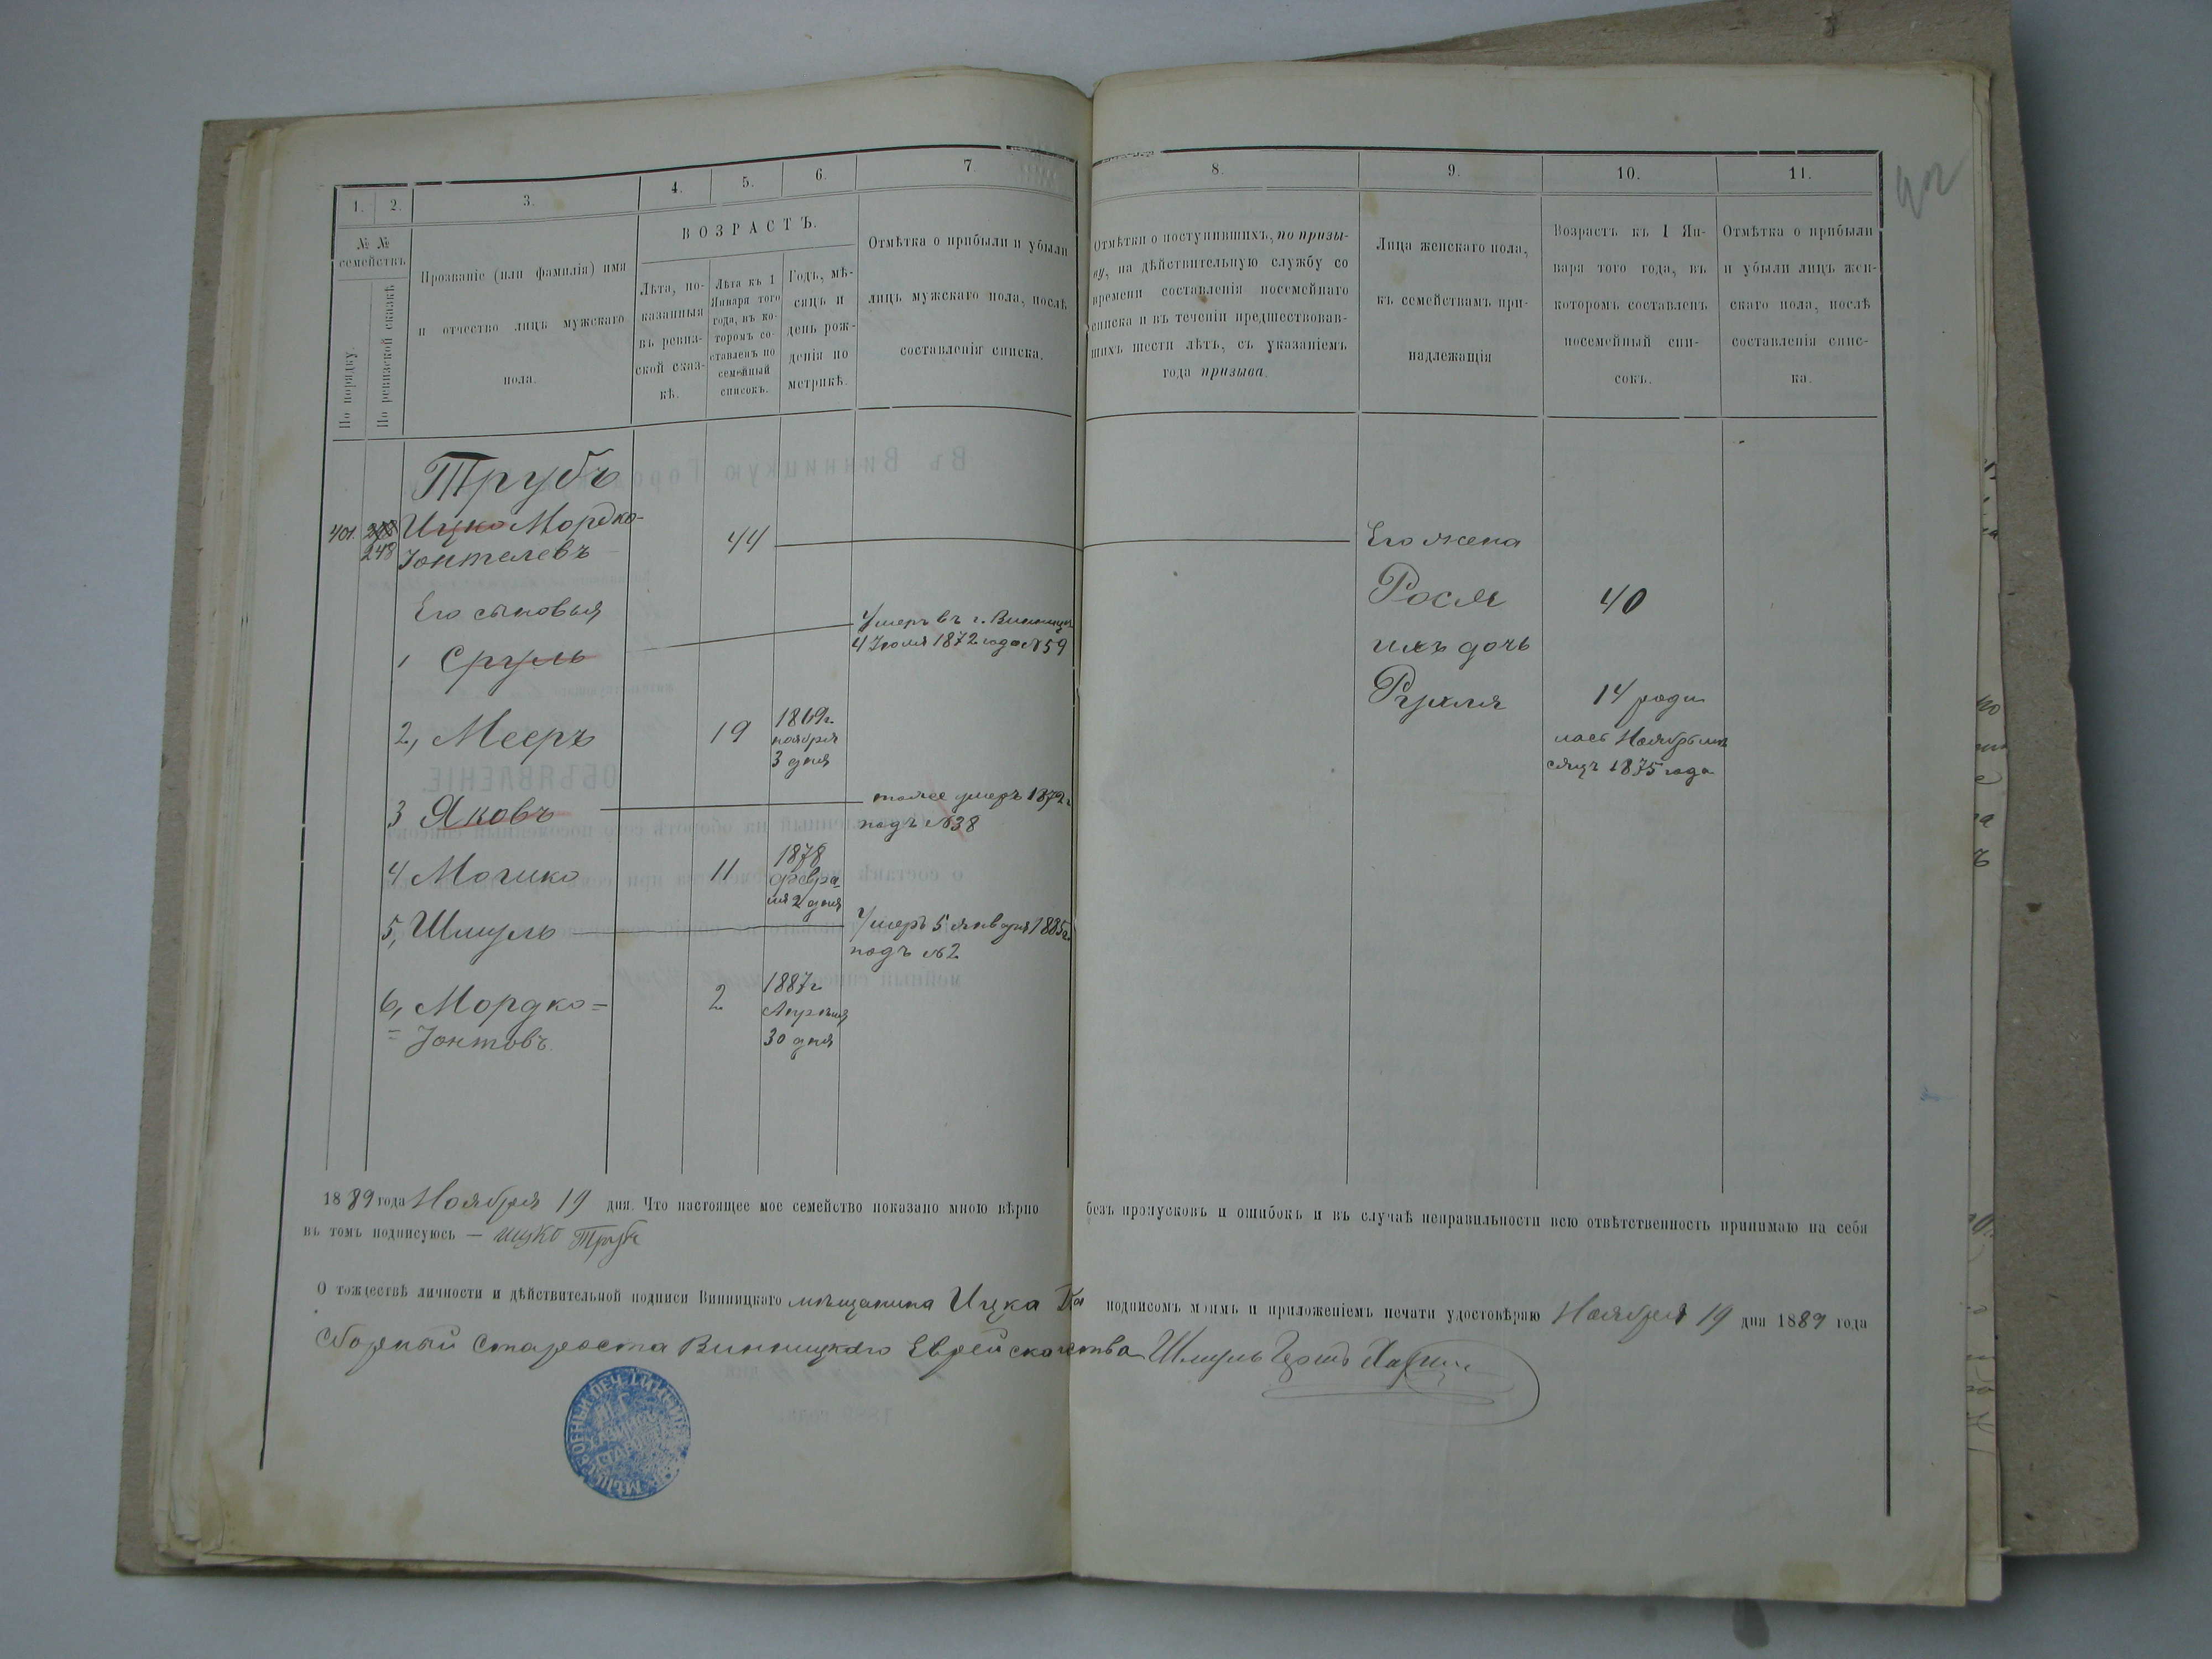 1.
2.
3.
4.
5.
6.
7
№ №
семействъ
По порядку.
По ревизской сказкѣ
Прозваніе (или фамилія) имя
и отчество лицъ мужскаго
пола.
ВОЗРАСТЪ.
Лѣта, по-
казанныя
въ ревиз-
ской сказ-
кѣ.
Лѣта къ 1
Января того
года, въ ко-
торомъ со-
ставленъ по
семейный
списокъ.
Годъ, мѣ-
сяцъ и
день рож-
денія по
метрикѣ.
Отмѣтка о прибыли и убыли
лицъ мужскаго пола, послѣ
составленія списка.
8.
9.
10.
11.
Отмѣтки о поступившихъ, по призы-
ву, на дѣйствительную службу со
времени составленія посемейнаго
списка и въ теченіи предшествовав-
шихъ шести лѣтъ, съ указаніемъ
года призыва.
Лица женскаго пола,
къ семействамъ при-
надлежащія
Возрастъ къ 1 Ян-
варя того года, въ
которомъ составленъ
посемейный спи-
сокъ.
Отмѣтка о прибыли
и убыли лицъ жен-
скаго пола, послѣ
составленія спис-
ка.
Трубъ
401. 248 Ицко Мордко-
Іонтелевъ
44
Его жена
Его сыновья
Рося 40
1 Сруль
Умеръ въ г. Винницѣ
4 Іюля 1872 года №59
ихъ дочь
Рухля 14 роди
лась Ноябрь мѣ
сяцъ 1875 года
2, Мееръ 19
1869г.
ноября
3 дня
3 Яковъ
тоже умеръ 1872г
подъ №38
4 Мошко 11
1878
февра-
ля 2 дня
5, Шмуль
Умеръ 5 января 1885г.
подъ №2
6, Мордко=
=Іонтовъ.
2
1887г
Апрѣля
30 дня
1889 года Ноября 19 дня. Что настоящее мое семейство показано мною вѣрно безъ пропусковъ и ошибокъ и въ случаѣ неправильности всю отвѣтственность принимаю на себя
въ томъ подписуюсь — ицко Трубъ
О тождествѣ личности и дѣйствительной подписи Винницкаго мѣщанина Ицка подписомъ моимъ и приложеніемъ печати удостовѣряю Ноября 19 дня 1889 года
Сборный Староста Винницкаго Еврейскаго Шмуль